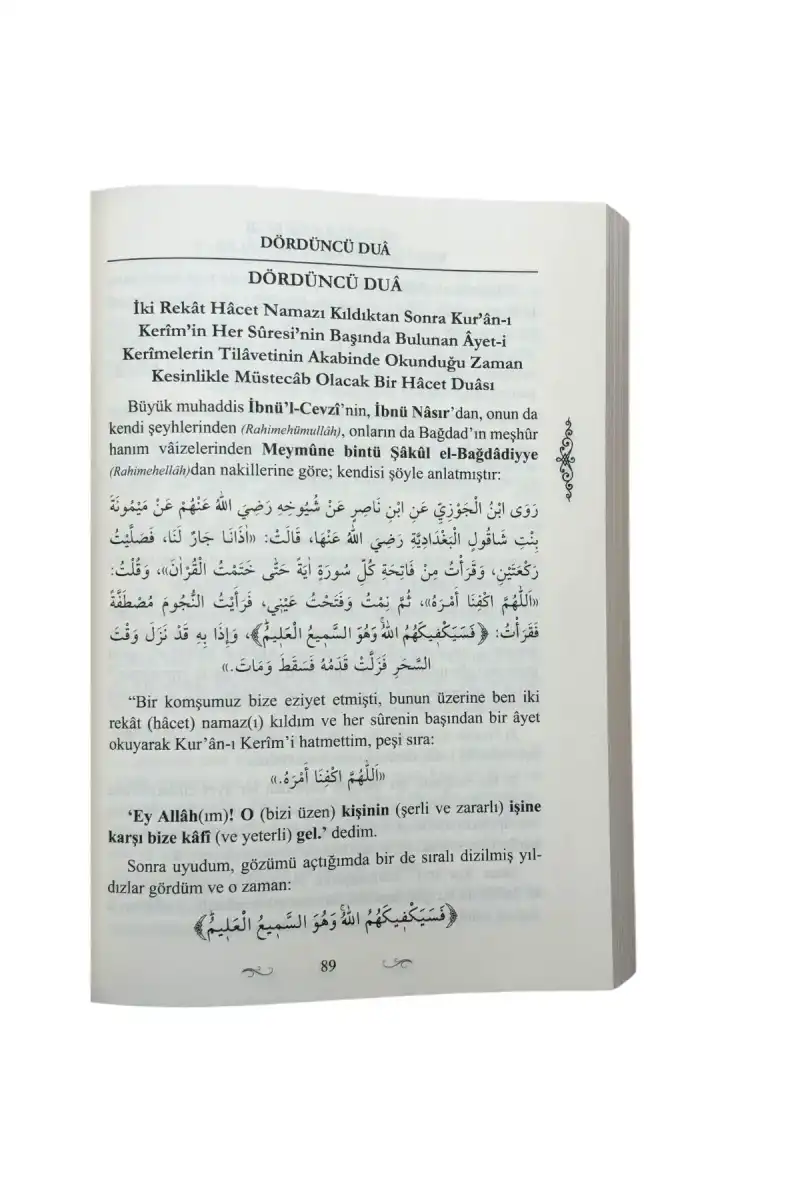 DÖRDÜNCÜ DUÂ
DÖRDÜNCÜ DUÂ
İki Rekât Hâcet Namazı Kıldıktan Sonra Kur’ân-ı
Kerîm’in Her Sûresi’nin Başında Bulunan Âyet-i
Kerîmelerin Tilâvetinin Akabinde Okunduğu Zaman
Kesinlikle Müstecâb Olacak Bir Hâcet Duâsı
Büyük muhaddis İbnü’l-Cevzî’nin, İbnü Nâsır’dan, onun da
kendi şeyhlerinden (Rahimehümullâh), onların da Bağdad’ın meşhûr
hanım vâizelerinden Meymûne bintü Şâkûl el-Bağdâdiyye
(Rahimehellâh)dan nakillerine göre; kendisi şöyle anlatmıştır:
رَوَى ابْنُ الْجَوْزِيِّ عَنِ ابْنِ نَاصِرٍ عَنْ شُيُوخِهِ رَضِيَ اللّٰهُ عَنْهُمْ عَنْ مَيْمُونَةَ
بِنْتِ شَاقُولٍ الْبَغْدَادِيَّةِ رَضِيَ اللّٰهُ عَنْهَا، قَالَتْ: «اٰذَانَا جَارٌ لَنَا، فَصَلَّيْتُ
رَكْعَتَيْنِ، وَقَرَأْتُ مِنْ فَاتِحَةِ كُلِّ سُورَةٍ اٰيَةً حَتَّى خَتَمْتُ الْقُرْاٰنَ»، وَقُلْتُ:
«اَللّٰهُمَّ اكْفِنَا أَمْرَهُ»، ثُمَّ نِمْتُ وَفَتَحْتُ عَيْنِي، فَرَأَيْتُ النُّجُومَ مُصْطَفَّةً
فَقَرَأْتُ: ﴿فَسَيَكْفِيكَهُمُ اللّٰهُۚ وَهُوَ السَّمِيعُ الْعَلِيمُۜ﴾، وَإِذَا بِهِ قَدْ نَزَلَ وَقْتَ
السَّحَرِ فَزَلَّتْ قَدَمُهُ فَسَقَطَ وَمَاتَ.»
“Bir komşumuz bize eziyet etmişti, bunun üzerine ben iki
rekât (hâcet) namaz(ı) kıldım ve her sûrenin başından bir âyet
okuyarak Kur’ân-ı Kerîm’i hatmettim, peşi sıra:
«اَللّٰهُمَّ اكْفِنَا أَمْرَهُ.»
‘Ey Allâh(ım)! O (bizi üzen) kişinin (şerli ve zararlı) işine
karşı bize kâfî (ve yeterli) gel.’ dedim.
Sonra uyudum, gözümü açtığımda bir de sıralı dizilmiş yıl-
dızlar gördüm ve o zaman:
﴿فَسَيَكْفِيكَهُمُ اللّٰهُۚ وَهُوَ السَّمِيعُ الْعَلِيمُۜ﴾
89